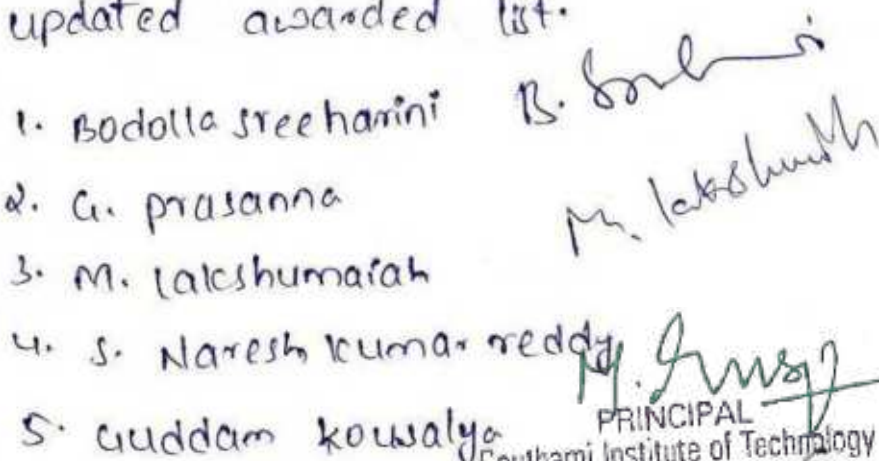 updated awarded list.
1. Bodolla sreeharini B.
2. G. prasanna
M. lakshum
3. M. lakshumaiah
4. S. Naresh kumar reddy
M.
PRINCIPAL
5. Guddam kowsalya
Gouthami Institute of Technology